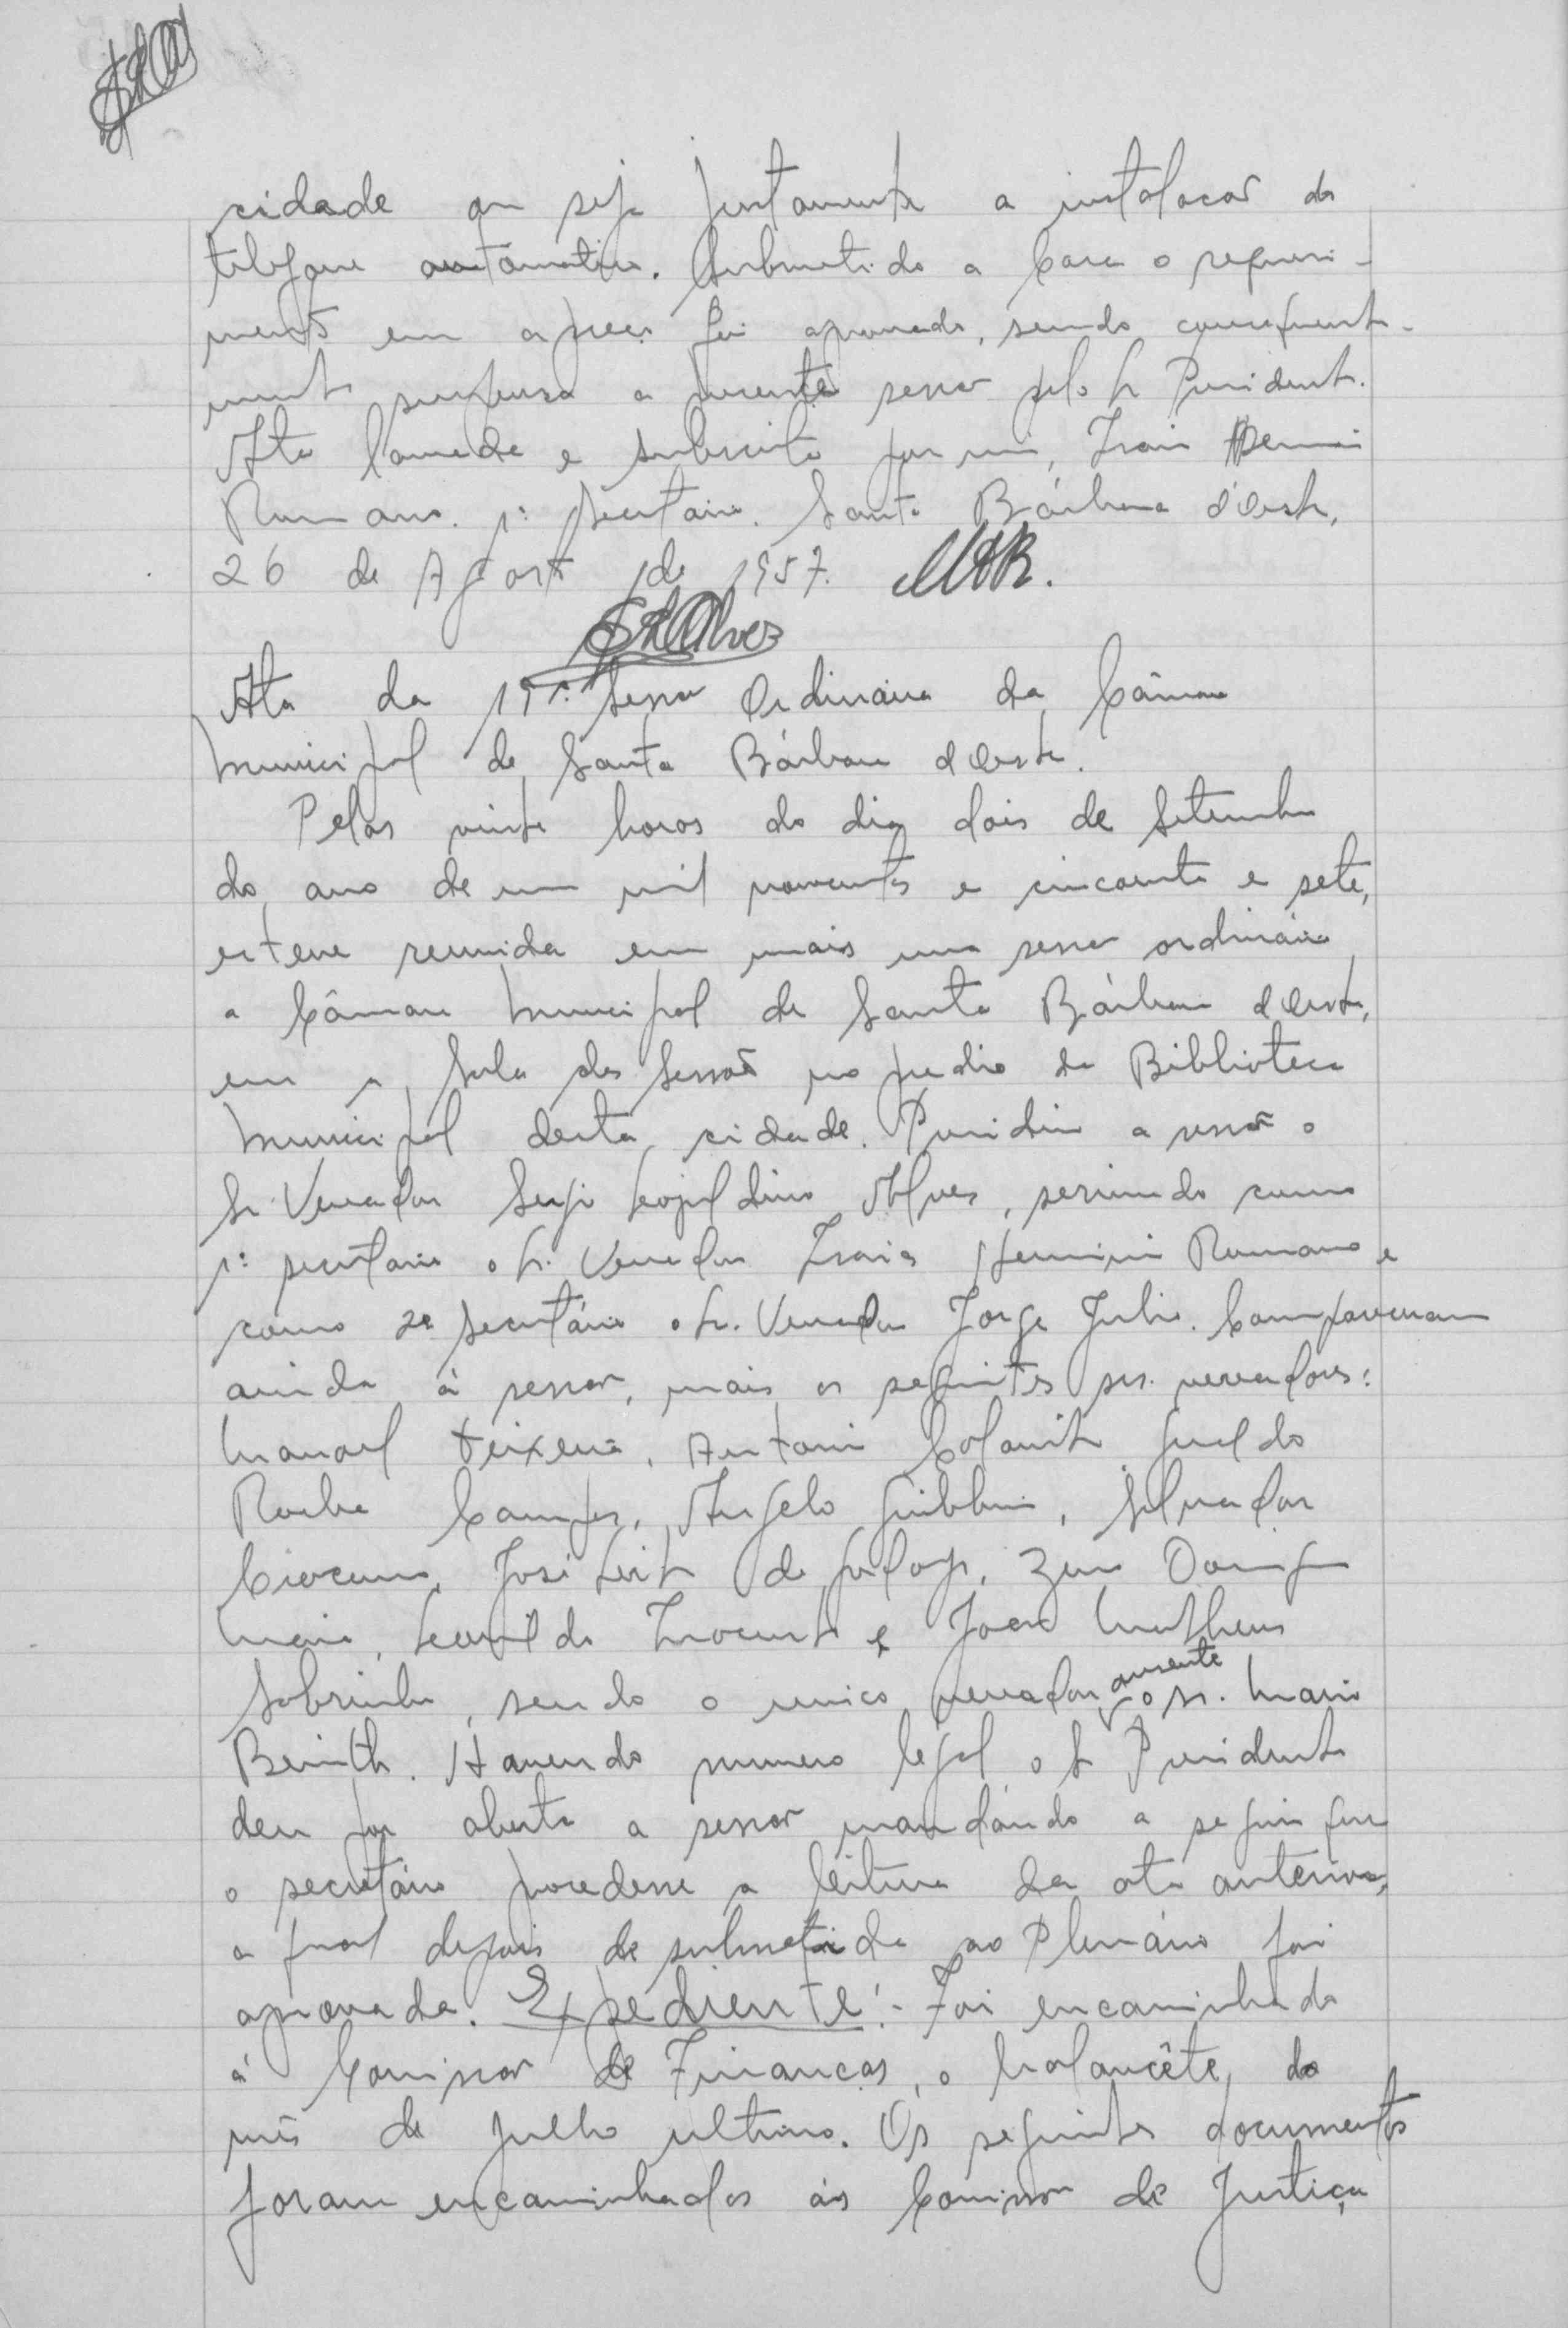 cidade ou seja justamente a instalacão do
telefone automatico. Submetido a Casa o requeri-
mento em apreço foi aprovado, sendo consequente-
mente suspensa a presente sessão pelo Sr Presidente.
Ata lavrada e subscrita por mim, Irai
Romano. 1º secretario. Santa Bárbara d'Oeste,
26 de Agosto de 1957.
SLAlves
Ata da 19ª. Sessão Ordinaria da Câmara
Municipal de Santa Bárbara d'Oeste.
Pelas vinte horas do dia dois de Setembro
do ano de um mil novecentos e cincoenta e sete,
esteve reunida em mais uma sessão ordinária
a Câmara Municipal de Santa Bárbara d'Oeste,
em a Sala das Sessões no predio da Biblioteca
Municipal desta cidade. Presidiu a sessão o
Sr Vereador Sergio Leopoldino Alves, servindo como
1º secretario o Sr. Vereador Romano e
como 2º Secretário o Sr. Vereador Jorge Julio. Compareceram
ainda à sessão, mais os seguintes srs. vereadores:
Manoel Teixeira, Antonio
Rocha Campos, Angelo Giubbini, Salvador
José Leite de Zeno Domingos
Maia, Leonildo e João Matheus
Sobrinho, sendo o unico vereador ausente o sr. Mario
Havendo numero legal o Sr Presidente
deu por aberta a sessão mandando a seguir que
o secretário procedesse a leitura da ata anterior,
a qual depois de submetida ao Plenário foi
aprovada. Expediente:- Foi encaminhado
à Comissão de Financas, o balancête do
mês de Julho ultimo. Os seguintes documentos
foram encaminhados às Comissão de Justiça